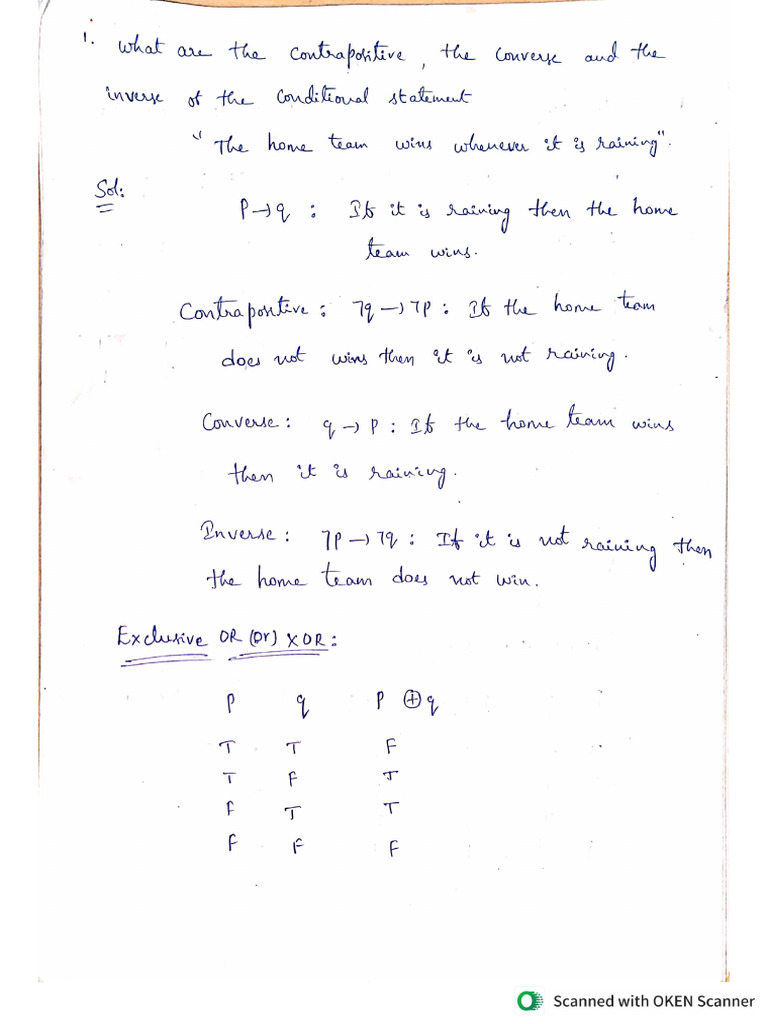 1. What are the contrapositive, the converse and the
inverse of the conditional statement
"The home team wins whenever it is raining".
Sol:
P→q : If it is raining then the home
team wins.
Contrapositive : ¬q→¬P : If the home team
does not wins then it is not raining.
Converse : q→P : If the home team wins
then it is raining.
Inverse : ¬P→¬q : If it is not raining then
the home team does not win.
Exclusive OR (or) XOR :
P q P⊕q
T T F
T F T
F T T
F F F
Scanned with OKEN Scanner